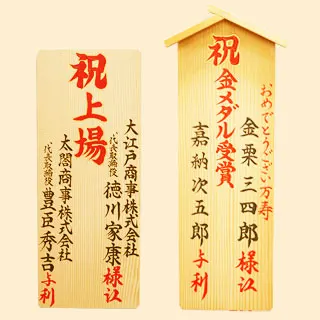 祝上場
大江戸商事株式会社
代表取締役 徳川家康様江
太閤商事株式会社
代表取締役 豊臣秀吉与利
祝
金メダル受賞
おめでとうござい万寿
金栗三四郎様江
嘉納次五郎与利